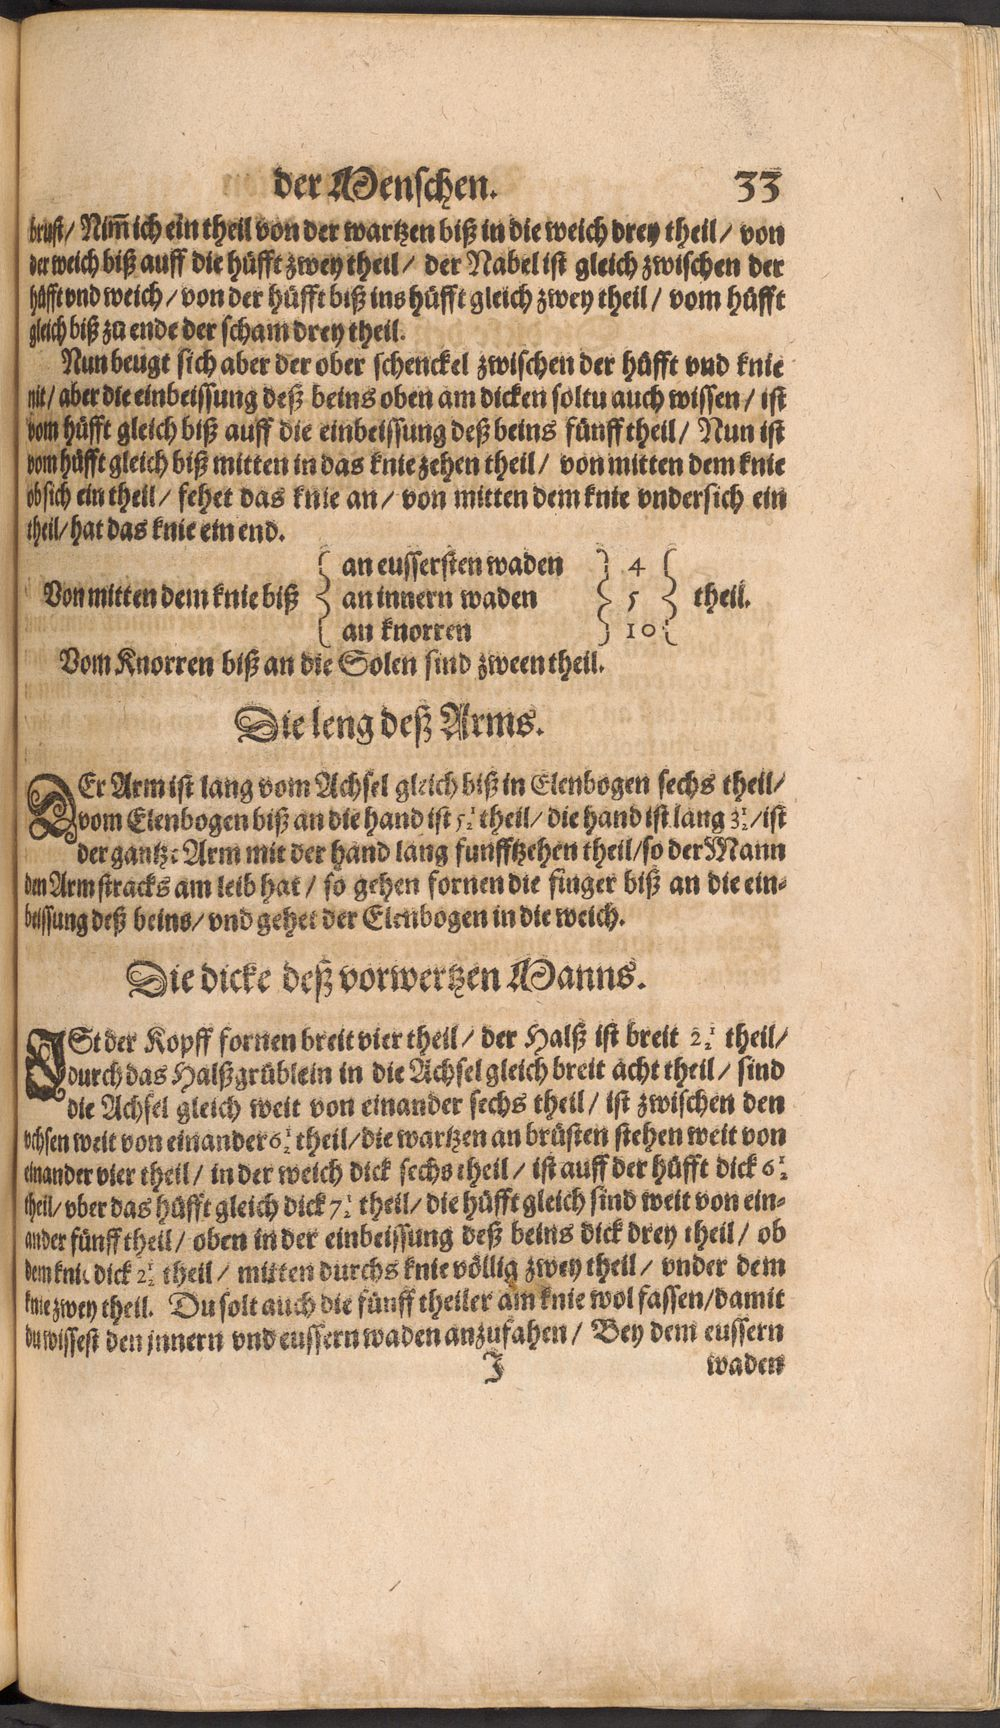 der Menschen. 33
brust/ Nim̃ ich ein theil von der wartzen biß in die weich drey theil/ von
der weich biß auff die hüfft zwey theil/ der Nabel ist gleich zwischen der
hüfft vnd weich/ von der hüfft biß ins hüfft gleich zwey theil/ vom hüfft
gleich biß zu ende der scham drey theil.
Nun beugt sich aber der ober schenckel zwischen der hüfft vnd knie
nit/ aber die einbeissung deß beins oben am dicken soltu auch wissen/ ist
vom hüfft gleich biß auff die einbeissung deß beins fünff theil/ Nun ist
vom hüfft gleich biß mitten in das knie zehen theil/ von mitten dem knie
obsich ein theil/ fehet das knie an/ von mitten dem knie vndersich ein
theil/ hat das knie ein end.
an eussersten waden } 4
Von mitten dem knie biß { an innern waden } 5 } theil.
an knorren } 10
Vom Knorren biß an die Solen sind zween theil.
Die leng deß Arms.
DEr Arm ist lang vom Achsel gleich biß in Elenbogen sechs theil/
vom Elenbogen biß an die hand ist 5½ theil/ die hand ist lang 3½/ ist
der gantze Arm mit der hand lang funfftzehen theil/ so der Mann
den Arm stracks am leib hat/ so gehen fornen die finger biß an die ein-
beissung deß beins/ vnd gehet der Elenbogen in die weich.
Die dicke deß vorwertzen Manns.
ISt der Kopff fornen breit vier theil/ der Halß ist breit 2½ theil/
durch das Halßgrüblein in die Achsel gleich breit acht theil/ sind
die Achsel gleich weit von einander sechs theil/ ist zwischen den
vchsen weit von einander 6½ theil/ die wartzen an brüsten stehen weit von
einander vier theil/ in der weich dick sechs theil/ ist auff der hüfft dick 6½
theil/ vber das hüfft gleich dick 7½ theil/ die hüfft gleich sind weit von ein-
ander fünff theil/ oben in der einbeissung deß beins dick drey theil/ ob
dem knie dick 2½ theil/ mitten durchs knie völlig zwey theil/ vnder dem
knie zwey theil. Du solt auch die fünff theiler am knie wol fassen/ damit
du wissest den jnnern vnd eussern waden anzufahen/ Bey dem eussern
J waden